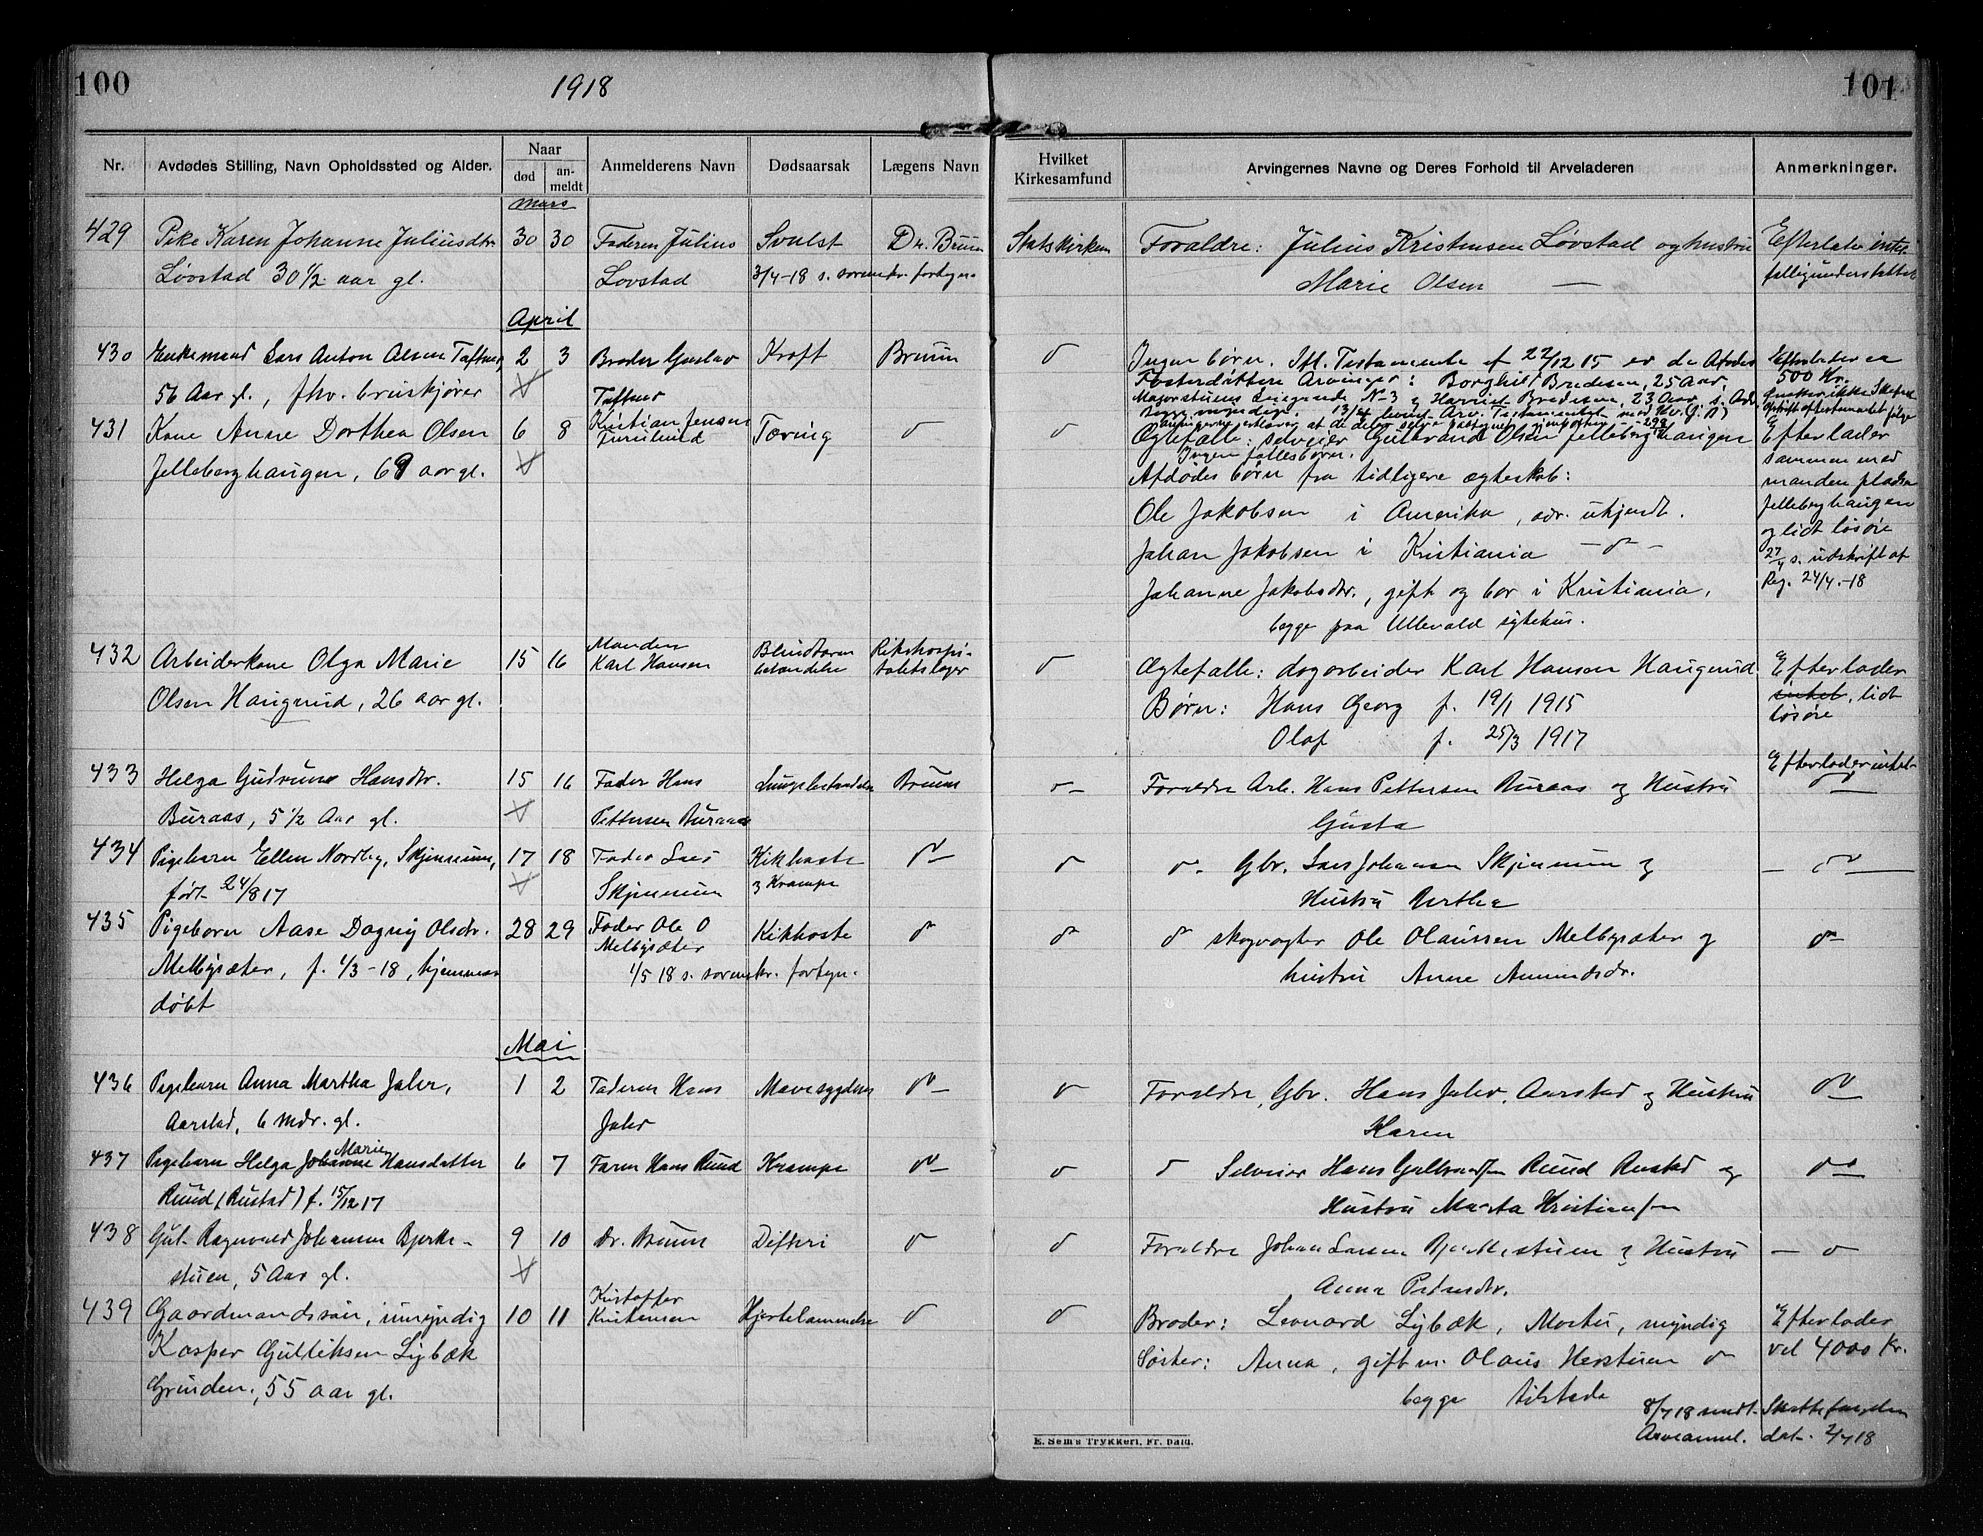 100
1918
101
Nr.
Avdødes Stilling, Navn Opholdssted og Alder.
Naar
død
an-
meldt
Anmelderens Navn
Dødsaarsak
Lægens Navn
Hvilket
Kirkesamfund
Arvingernes Navne og Deres Forhold til Arveladeren
Anmerkninger.
Mars
429 Pike Karen Johanne Juliusdtr. 30 30 Faderen Julius Svulst Dr. Bruun Statskirken Forældre: Julius Kristensen Løvstad og hustru Efterlater intet
Løvstad 30 1/2 aar gl. Løvstad 3/4-18 s. sorenskr. fortegn. Marie Olsen —
April
430 Enkemand Lars Anton Olsen Taftner, 2 3 Broder Gustav Kræft Bruun d Ingen børn. Ifl. Testamente af 22/12 15 er de Afdødes Efterlader ca
56 Aar gl., fhv. bruskjører Taftner Fosterdøttre Arvinger: Borghild Bredesen, 25 Aar, 500 Kr.
Majorstuens Leiegaarde N-3 og Harriet Bredesen, 23 Aar, s. Adr.
Begge myndige.
431 Kone Anne Dorthea Olsen 6 8 Kristian Jensen Tæring d d Ægtefælle: selveier Gulbrand Olsen Jelleberghaugen Efterlader
Ingen fællesbørn.
Jelleberghaugen, 69 aar gl. Afdødes børn fra tidligere ægteskab: sammen med
manden pladsen
Ole Jakobsen i Amerika, adr. ukjendt. Jelleberghaugen
og lidt løsøre
Johan Jakobsen i Kristiania — d — 27/4 s. udskrift af
Reg. 24/4.-18
Johanne Jakobsdtr., gift og bor i Kristiania,
begge paa Ullevald sykehus.
432 Arbeiderkone Olga Marie 15 16 Manden Karl Hansen Blindtarmbetændelse Rikshospitalets læger d Ægtefælle: dagarbeider Karl Hansen Haugerud. Efterlader
Olsen Haugerud, 26 aar gl. Børn: Hans Georg f. 19/1 1915 intet, lidt
løsøre
Olaf f. 25/3 1917
433 Helga Gudrun Hansdtr. 15 16 Fader Hans Lungebetændelse Bruun d— Forældre Arb. Hans Pettersen Buraas og Hustru Efterlader intet
Buraas, 5 1/2 Aar gl. Pettersen Buraas Gusta
434 Pigebarn Ellen Nordby, Skjennum, 17 18 Fader Lars Kikhoste d— d d. Gbr. Lars Johansen Skjennum og — d —
født 24/8 17 Skjennum & Krampe Hustru Berthe
435 Pigebarn Aase Dagny Olsdtr. 28 29 Fader Ole O Kikhoste d d d skogvogter Ole Olaussen Melbysæter og d
Melbysæter, f. 1/3-18, hjemme- Melbysæter 1/5 18 s. sorenskr. fortegn. hustru Anne Amundsdr.
døbt
Mai
436 Pigebarn Anna Martha Jahr, 1 2 Faderen Hans Mavesygdom d— d Forældre, Gbr. Hans Jahr, Aarstad og Hustru d—
Aarstad, 6 mdr. gl. Jahr Karen
437 Pigebarn Helga Johanne Marie Hansdatter 6 7 Faren Hans Ruud Krampe d— d d Selveier Hans Gulbrandsen Ruud Rustad og d—
Ruud (Rustad) f. 15/12 17 Hustru Marta Kristiansen
438 Gut Ragnvald Johansen Bjerke- 9 10 Dr. Bruun Difteri d d Forældre Johan Larsen Bjerkestuen & Hustru — d
stuen, 5 Aar gl. Anna Pedersdtr.
439 Gaardmandssøn, umyndig 10 11 Kristoffer Kristensen Hjertelammelse d d Broder: Leonard Lybæk, Morstu, myndig Efterlader
Kasper Gulliksen Lybæk Søster: Anna, gift m. Olaus Herstuen d vel 4000 Kr.
Grinden, 55 aar gl. begge tilstede
8/7 18 sendt Skattefogden
Arveanmel. dat. 2/7 18
E. Sem's Trykkeri, Fr. hald.